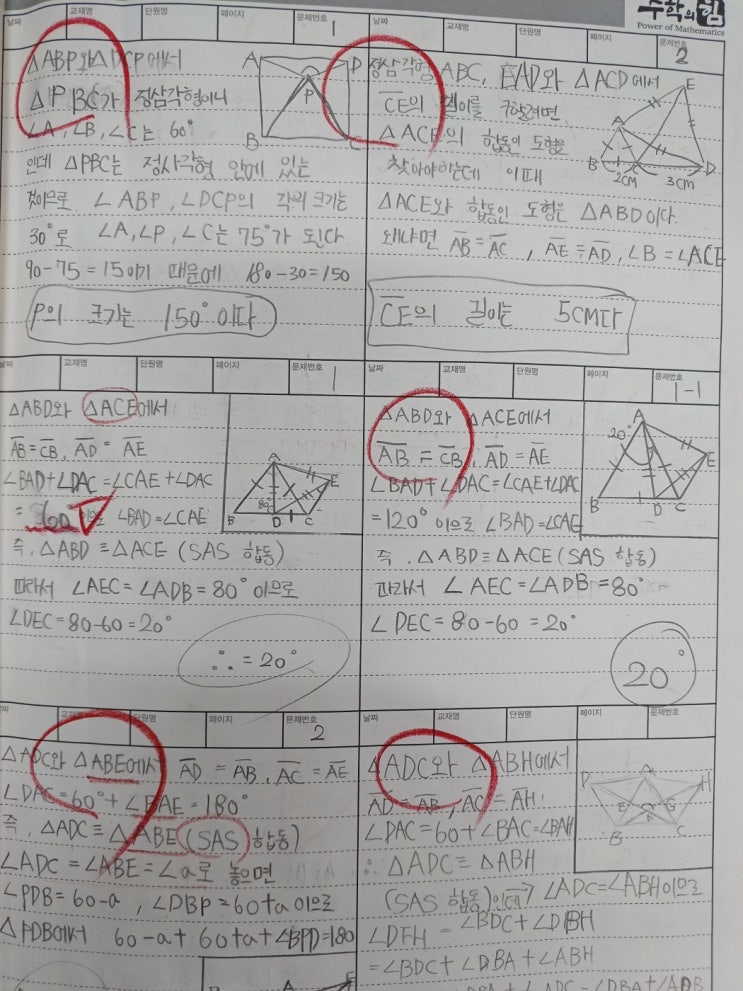 수학의힘
Power of Mathematics
날짜 교재명 단원명 페이지 문제번호 1
△ABP와 △DCP에서
△PBC가 정삼각형이니
∠A, ∠B, ∠C는 60°
인데 △PBC는 정사각형 안에 있는
것이므로 ∠ABP, ∠DCP의 각의 크기는
30°로 ∠A, ∠P, ∠C는 75°가 된다
90-75=15이기 때문에 180-30=150
P의 크기는 150°이다
A D P B C
날짜 교재명 단원명 페이지 문제번호 2
정삼각형 ABC, EAD와 △ACD에서
CE의 길이를 구할려면
△ACE의 합동인 도형을
찾아야하는데 이때
△ACE와 합동인 도형은 △ABD이다.
왜냐면 AB=AC, AE=AD, ∠B=∠ACE
CE의 길이는 5CM다
E A B C D 2CM 3CM
날짜 교재명 단원명 페이지 문제번호 1
△ABD와 △ACE에서
AB=CB, AD=AE
∠BAD+∠DAC=∠CAE+∠DAC
=60°이므로 ∠BAD=∠CAE
즉, △ABD≡△ACE (SAS 합동)
따라서 ∠AEC=∠ADB=80°이므로
∠DEC=80-60=20°
∴=20°
A E 80 B D C
날짜 교재명 단원명 페이지 문제번호 1-1
△ABD와 △ACE에서
AB=CB, AD=AE
∠BAD+∠DAC=∠CAE+∠DAC
=120°이으로 ∠BAD=∠CAE
즉, △ABD≡△ACE (SAS 합동)
따라서 ∠AEC=∠ADB=80°
∠DEC=80-60=20°
20°
A 20° E B D C
교재명 단원명 페이지 문제번호 2
△ADC와 △ABE에서 AD=AB, AC=AE
∠DAC=60°+∠BAE=180°
즉, △ADC≡△ABE (SAS 합동)
∠ADC=∠ABE=∠a로 놓으면
∠PDB=60-a, ∠DBP=60+a이으로
△PDB에서 60-a+60+a+∠BPD=180
날짜 교재명 단원명 페이지 문제번호
△ADC와 △ABH에서
AD=AB, AC=AH
∠DAC=60+∠BAC=∠BAH
∴△ADC≡△ABH
(SAS 합동)인데→∠ADC=∠ABH이으로
∠DFH=∠BDC+∠DBH
=∠BDC+∠DBA+∠ABH
D A H E G F B C